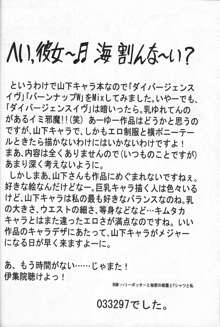 へい,彼女～♬ 海 割んな～い?
というわけで山下キャラ本なので「ダイバージェンス
イヴ」「バーンナップW」をMixしてみました。いやーでも、
「ダイバージェンスイヴ」は暗いったら、乳ゆれてんの
があるイミ邪魔!!(笑) あーゆー作品はどうかと思うので
すが、山下キャラで、しかもエロ制服と横ポニーテー
ルときたら描かないわけにもいきません(笑)
まあ、内容は全くありませんので(いつものことですが)、
あまり深く考えないで下さい。
しかしまあ、山下さんも作品にめぐまれないですねぇ。
好きな絵なんだけどなー。巨乳キャラ描く人は色々い
ますけど、山下キャラは私の最も好きなバランスなのね。乳
の大きさ、ウエストの細さ、等身などなど…キムタカ
キャラとはまた違ったエロさが満点なのですが。いい
作品のキャラデザにあたって、山下キャラがメジャー
になる日が早く来ますように…。
あ、もう時間がない…じゃまた!
伊集院聴けよっ!
033297でした。